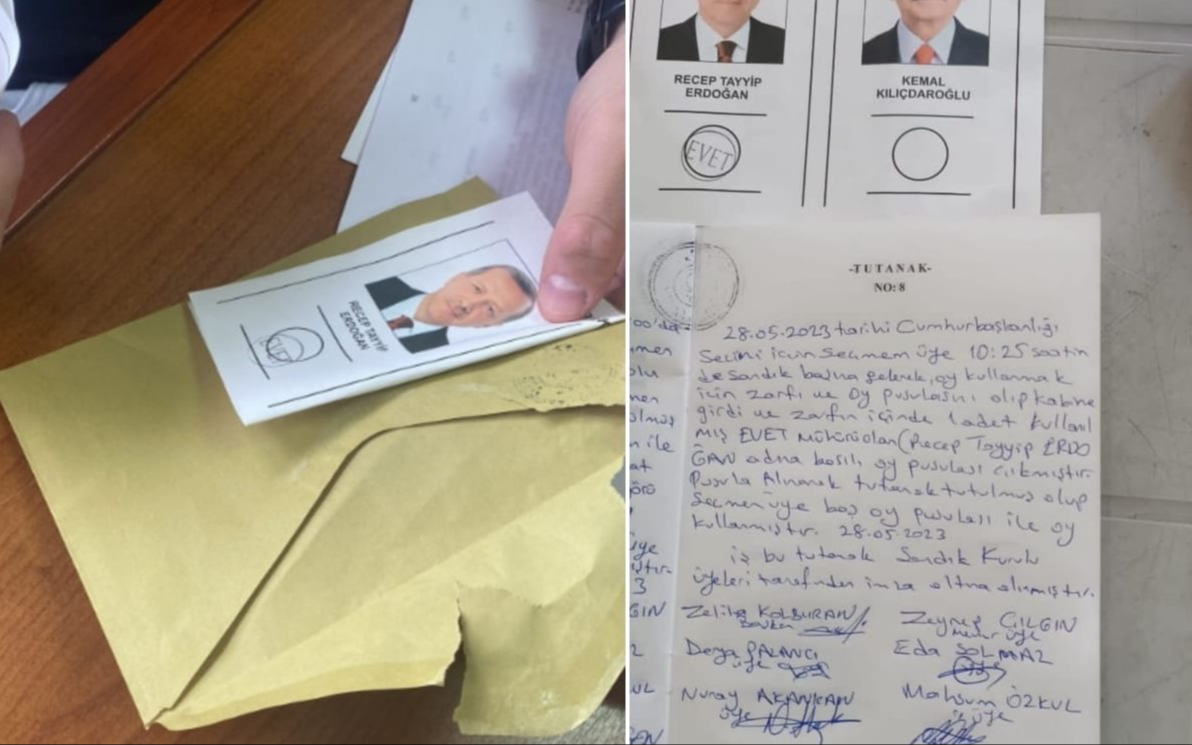 RECEP TAYYİP
ERDOĞAN
EVET
RECEP TAYYİP
ERDOĞAN
KEMAL
KILIÇDAROĞLU
EVET
-TUTANAK-
NO: 8
28.05.2023 tarihi Cumhurbaşkanlığı
Seçimi için Seçmen üye 10:25 saatin
de Sandık başına gelerek, oy kullanmak
için zarfı ve oy pusulasını alıp kabine
girdi ve zarfın içinde 1 adet kullanıl
mış EVET mühürü olan (Recep Tayyip ERDO
ĞAN adına basılı oy pusulası çıkmıştır.
Pusula Alınarak tutanak tutulmuş olup
Seçmen üye boş oy pusulası ile oy
kullanmıştır. 28.05.2023
iş bu tutanak Sandık Kurulu
üyeleri tarafından imza altına alınmıştır.
Zeliha KOLBURAN Zeynep ÇILGIN
Başkan Memur üye
Derya PALANCI Eda SOLMAZ
üye üye
Nuray Mahsum ÖZKUL
üye üye